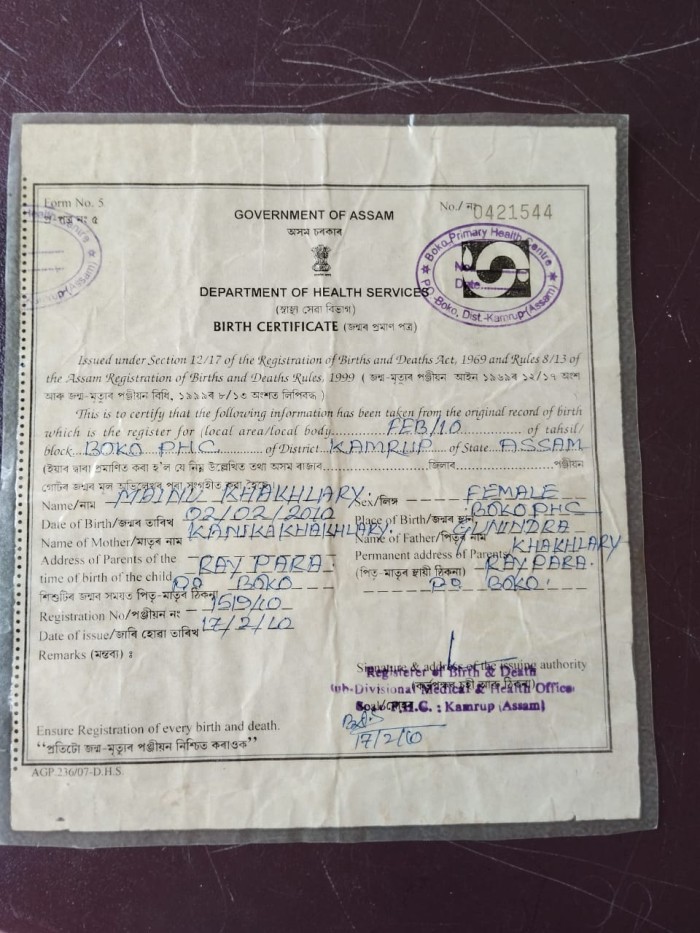 Form No. 5
প্ৰ-পত্ৰ নং ৫
No./ নং 0421544
GOVERNMENT OF ASSAM
অসম চৰকাৰ
Boko Primary Health Centre
No.
Date
P.O. Boko, Dist.-Kamrup (Assam)
DEPARTMENT OF HEALTH SERVICES
(স্বাস্থ্য সেৱা বিভাগ)
BIRTH CERTIFICATE (জন্মৰ প্ৰমাণ পত্ৰ)
Issued under Section 12/17 of the Registration of Births and Deaths Act, 1969 and Rules 8/13 of
the Assam Registration of Births and Deaths Rules, 1999 ( জন্ম-মৃত্যুৰ পঞ্জীয়ন আইন ১৯৬৯ৰ ১২/১৭ অংশ
আৰু জন্ম-মৃত্যুৰ পঞ্জীয়ন বিধি, ১৯৯৯ৰ ৮/১৩ অংশত লিপিবদ্ধ )
This is to certify that the following information has been taken from the original record of birth
which is the register for (local area/local body FEB/10 of tahsil/
block BOKO PHC of District KAMRUP of State ASSAM
(ইয়াৰ দ্বাৰা প্ৰমাণিত কৰা হ'ল যে নিম্ন উল্লেখিত তথ্য অসম ৰাজ্যৰ জিলাৰ পঞ্জীয়ন
গোটৰ জন্মৰ মূল অভিলেখৰ পৰা সংগৃহীত কৰা হৈছে)
Name/নাম MAINU KHAKHLARY. Sex/লিঙ্গ FEMALE
Date of Birth/জন্মৰ তাৰিখ 02/02/2010 Place of Birth/জন্মৰ স্থান BOKO PHC
Name of Mother/মাতৃৰ নাম KANIKA KHAKHLARY. Name of Father/পিতৃৰ নাম GUNINDRA KHAKHLARY
Address of Parents of the RAY PARA. Permanent address of Parents RAY PARA.
time of birth of the child P.O BOKO (পিতৃ-মাতৃৰ স্থায়ী ঠিকনা) P.O BOKO.
শিশুটিৰ জন্মৰ সময়ত পিতৃ-মাতৃৰ ঠিকনা
Registration No/পঞ্জীয়ন নং 1519/10
Date of issue/জাৰি হোৱা তাৰিখ 17/2/10
Remarks (মন্তব্য) :
Signature & address of the issuing authority
Registerer of Birth & Death
Sub-Divisional Medical & Health Officer
P.H.C. : Kamrup (Assam)
17/2/10
Ensure Registration of every birth and death.
“প্ৰতিটো জন্ম-মৃত্যুৰ পঞ্জীয়ন নিশ্চিত কৰাওক”
AGP.236/07-D.H.S.